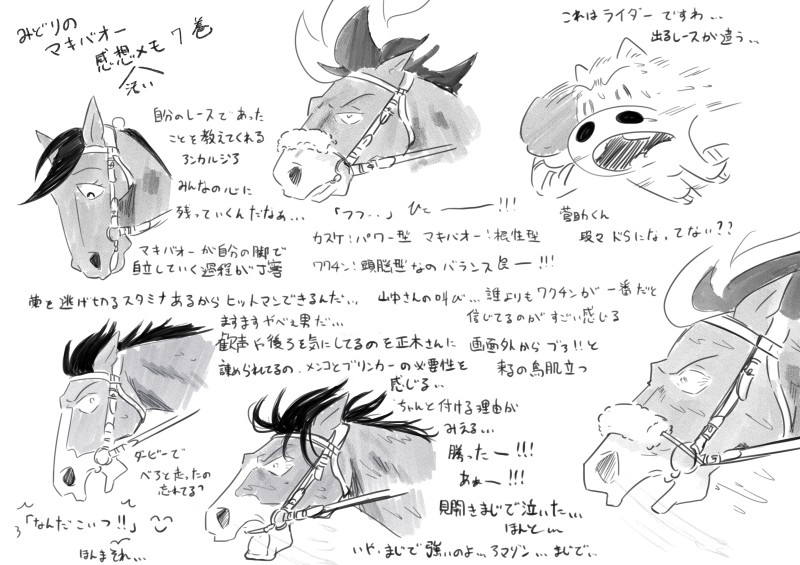 みどりの
マキバオー
感想メモ 7巻
自分のレースであった
ことを教えてくれる
アンカルジア
みんなの心に
残っていくんだなぁ...
マキバオーが自分の脚で
自立していく過程が丁寧
「フフ・・」ひこー!!!
カスケ:パワー型 マキバオー:根性型
ワクチン:頭脳型なのバランス良ー!!!
これはライダーですわ...
出るレースが違う..
菅助くん
段々ドSになってない??
菊を逃げ切るスタミナあるからヒットマンできるんだ...
ますますやべぇ男だ...
山中さんの叫び...誰よりもワクチンが一番だと
信じてるのがすごい感じる
歓声や後ろを気にしてるのを正木さんに
諌められてるの、メンコとブリンカーの必要性を
感じる..
ちゃんと付ける理由が
みえる...
画面外からブッ!!と
来るの鳥肌立つ
ダービーで
べろと走ったの
忘れてる?
「なんだこいつ!!」
ほんまそれ...
勝ったー!!!
あぁー!!!
見開きまじで泣いた...
ほんと
いや、まじで強いのよ...アマゾン...まじで..